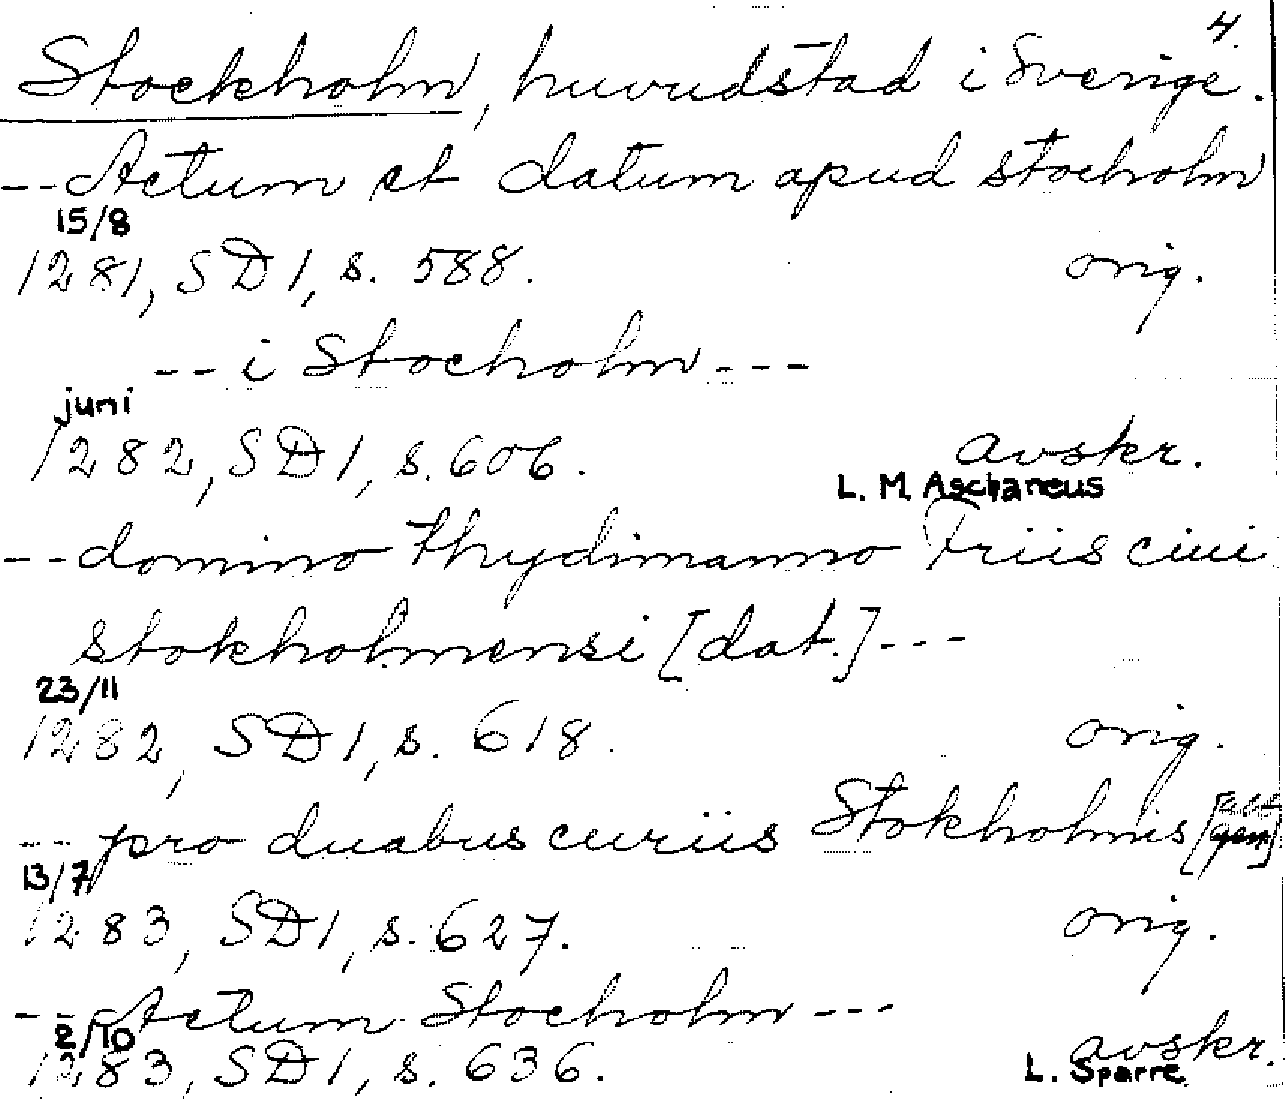 4.
Stockholm, huvudstad i Sverige.
--Actum et datum apud stocholm
15/8
1281, SD 1, s. 588. orig.
--i Stocholm---
juni
1282, SD 1, s. 606. avskr.
L. M. Aschaneus
--domino thydimanno Friis ciui
stokholmensi [dat.]---
23/11
1282, SD 1, s. 618. orig.
--pro duabus curiis Stokholmis [gen]
13/7
1283, SD 1, s. 627. orig.
--Actum Stocholm---
2/10
1283, SD 1, s. 636. avskr.
L. Sparre